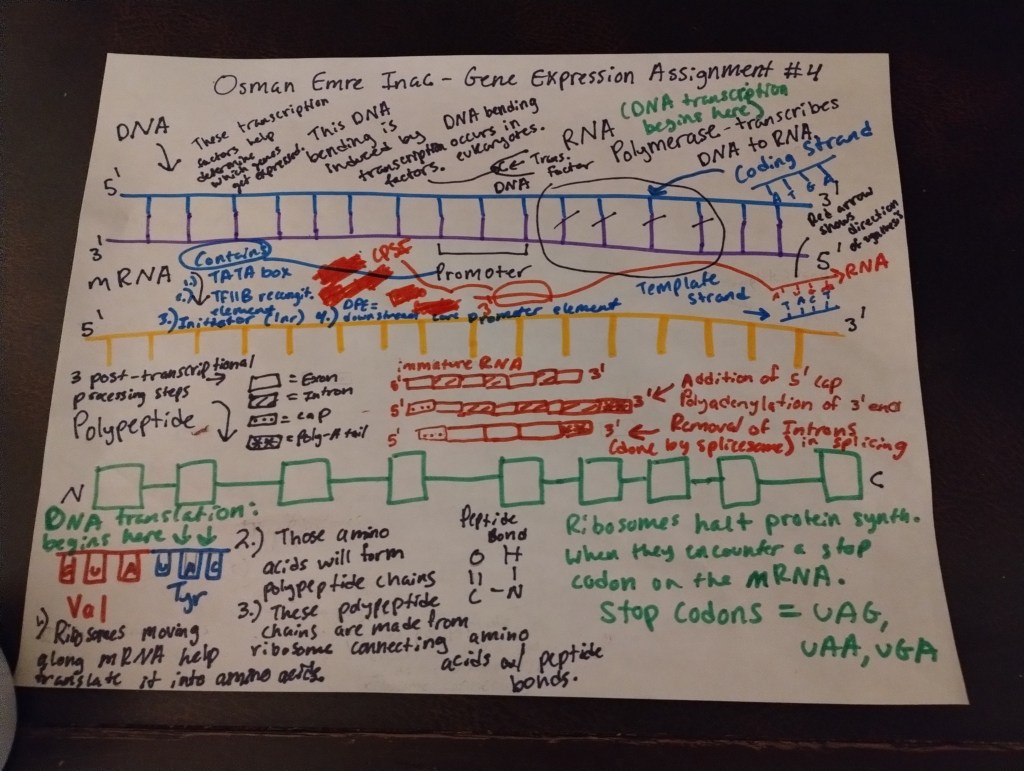 Osman Emre Inac - Gene Expression Assignment #4
DNA
These transcription
factors help
determine
which genes
get expressed.
This DNA
bending is
induced by
transcription
factors.
DNA bending
occurs in
eukaryotes.
Trans.
Factor
DNA
(DNA transcription
begins here)
RNA
Polymerase - transcribes
DNA to RNA.
Coding Strand
A T G A
5'
3'
3'
5'
Red arrow
shows
direction
of synthesis
mRNA
Contains
1.) TATA box
2.) TFIIB recognit.
element
3.) Initiator (Inr)
4.) DPE =
downstream core promoter element
Promoter
3'
Template
strand
RNA
T A C T
5'
3'
3 post-transcriptional
processing steps
Polypeptide
= Exon
= Intron
= cap
= Poly-A tail
immature RNA
5' 3'
5' 3' Addition of 5' cap
Polyadenylation of 3' end
5' 3' Removal of Introns
(done by splicesome) in splicing
N
C
DNA translation:
begins here
G U A U A C
Val
Tyr
1.) Ribosomes moving
along mRNA help
translate it into amino acids.
2.) Those amino
acids will form
polypeptide chains
3.) These polypeptide
chains are made from
ribosome connecting amino
acids w/ peptide
bonds.
Peptide
Bond
O H
C - N
Ribosomes halt protein synth.
When they encounter a stop
codon on the mRNA.
Stop Codons = UAG,
UAA, UGA